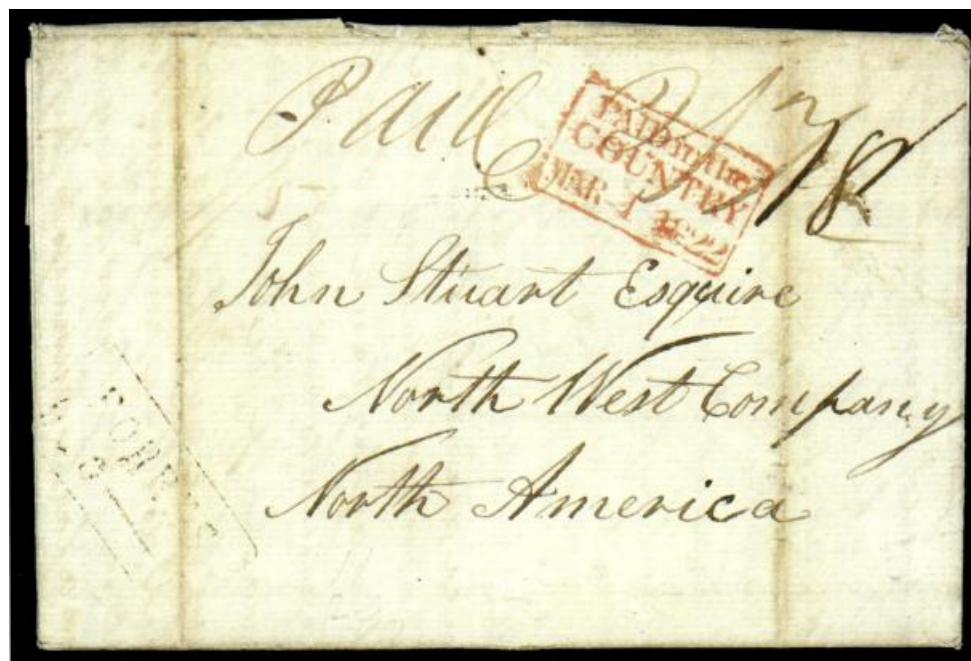 Paid
PAID in the
COUNTRY
MAR 1 1822
18
John Stuart Esquire
North West Company
North America
FORRES